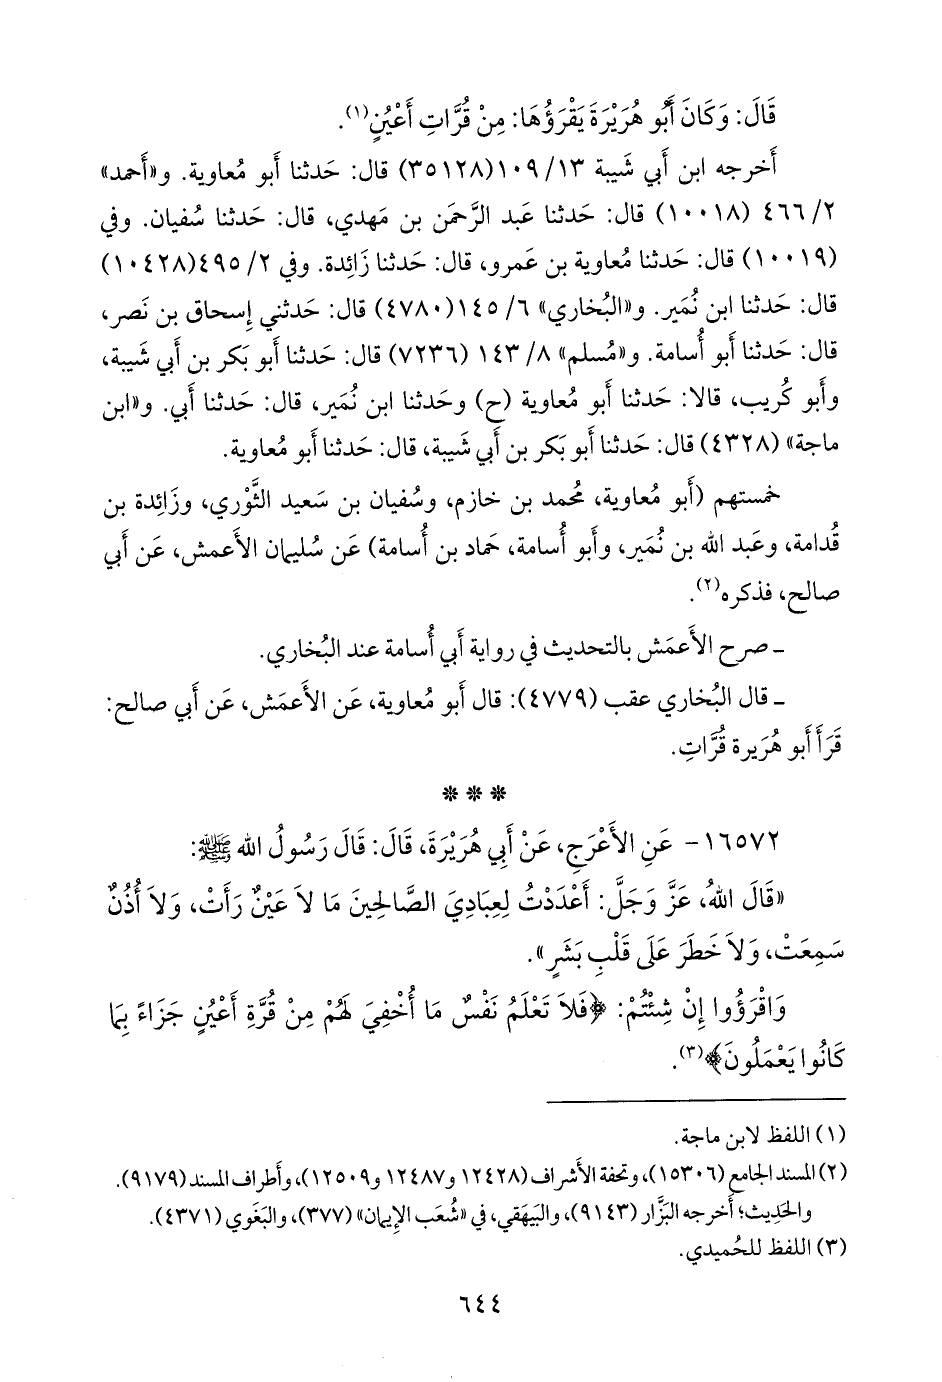 قَالَ: وَكَانَ أَبُو هُرَيْرَةَ يَقْرَؤُهَا: مِنْ قُرَّاتِ أَعْيُنٍ(١).
أَخرجه ابن أَبي شَيبة ١٣/ ١٠٩(٣٥١٢٨) قال: حَدثنا أَبو مُعاوية. و«أَحمد»
٢/ ٤٦٦ (١٠٠١٨) قال: حَدثنا عَبد الرَّحمَن بن مَهدي، قال: حَدثنا سُفيان. وفي
(١٠٠١٩) قال: حَدثنا مُعاوية بن عَمرو، قال: حَدثنا زَائِدة. وفي ٢/ ٤٩٥(١٠٤٢٨)
قال: حَدثنا ابن نُمَير. و«البُخاري» ٦/ ١٤٥(٤٧٨٠) قال: حَدثني إِسحاق بن نَصر،
قال: حَدثنا أَبو أُسامة. و«مُسلم» ٨/ ١٤٣ (٧٢٣٦) قال: حَدثنا أَبو بَكر بن أَبي شَيبة،
وأَبو كُريب، قالا: حَدثنا أَبو مُعاوية (ح) وحَدثنا ابن نُمَير، قال: حَدثنا أَبي. و«ابن
ماجة» (٤٣٢٨) قال: حَدثنا أَبو بَكر بن أَبي شَيبة، قال: حَدثنا أَبو مُعاوية.
خمستهم (أَبو مُعاوية، مُحمد بن خازم، وسُفيان بن سَعيد الثَّوْري، وزَائِدة بن
قُدامة، وعَبد الله بن نُمَير، وأَبو أُسامة، حَماد بن أُسامة) عَن سُليمان الأَعمش، عَن أَبي
صالح، فذكره(٢).
ـ صرح الأَعمَش بالتحديث في رواية أَبي أُسامة عند البُخاري.
ـ قال البُخاري عقب (٤٧٧٩): قال أَبو مُعاوية، عَن الأَعمَش، عَن أَبي صالح:
قَرَأَ أَبو هُرَيرة قُرَّاتِ.
* * *
١٦٥٧٢- عَنِ الأَعْرَجِ، عَنْ أَبِي هُرَيْرَةَ، قَالَ: قَالَ رَسُولُ الله ﷺ:
«قَالَ اللهُ، عَزَّ وَجَلَّ: أَعْدَدْتُ لِعِبَادِيَ الصَّالِحِينَ مَا لاَ عَيْنٌ رَأَتْ، وَلاَ أُذُنٌ
سَمِعَتْ، وَلاَ خَطَرَ عَلَى قَلْبِ بَشَرٍ».
وَاقْرَؤُوا إِنْ شِئْتُمْ: ﴿فَلاَ تَعْلَمُ نَفْسٌ مَا أُخْفِيَ لَهُمْ مِنْ قُرَّةِ أَعْيُنٍ جَزَاءً بِمَا
كَانُوا يَعْمَلُونَ﴾(٣).
(١) اللفظ لابن ماجة.
(٢) المسند الجامع (١٥٣٠٦)، وتحفة الأشراف (١٢٤٢٨ و١٢٤٨٧ و١٢٥٠٩)، وأَطراف المسند (٩١٧٩).
والحَدِيث؛ أَخرجه البَزَّار (٩١٤٣)، والبَيهَقي، في «شُعَب الإِيمان» (٣٧٧)، والبَغَوي (٤٣٧١).
(٣) اللفظ للحُميدي.
٦٤٤